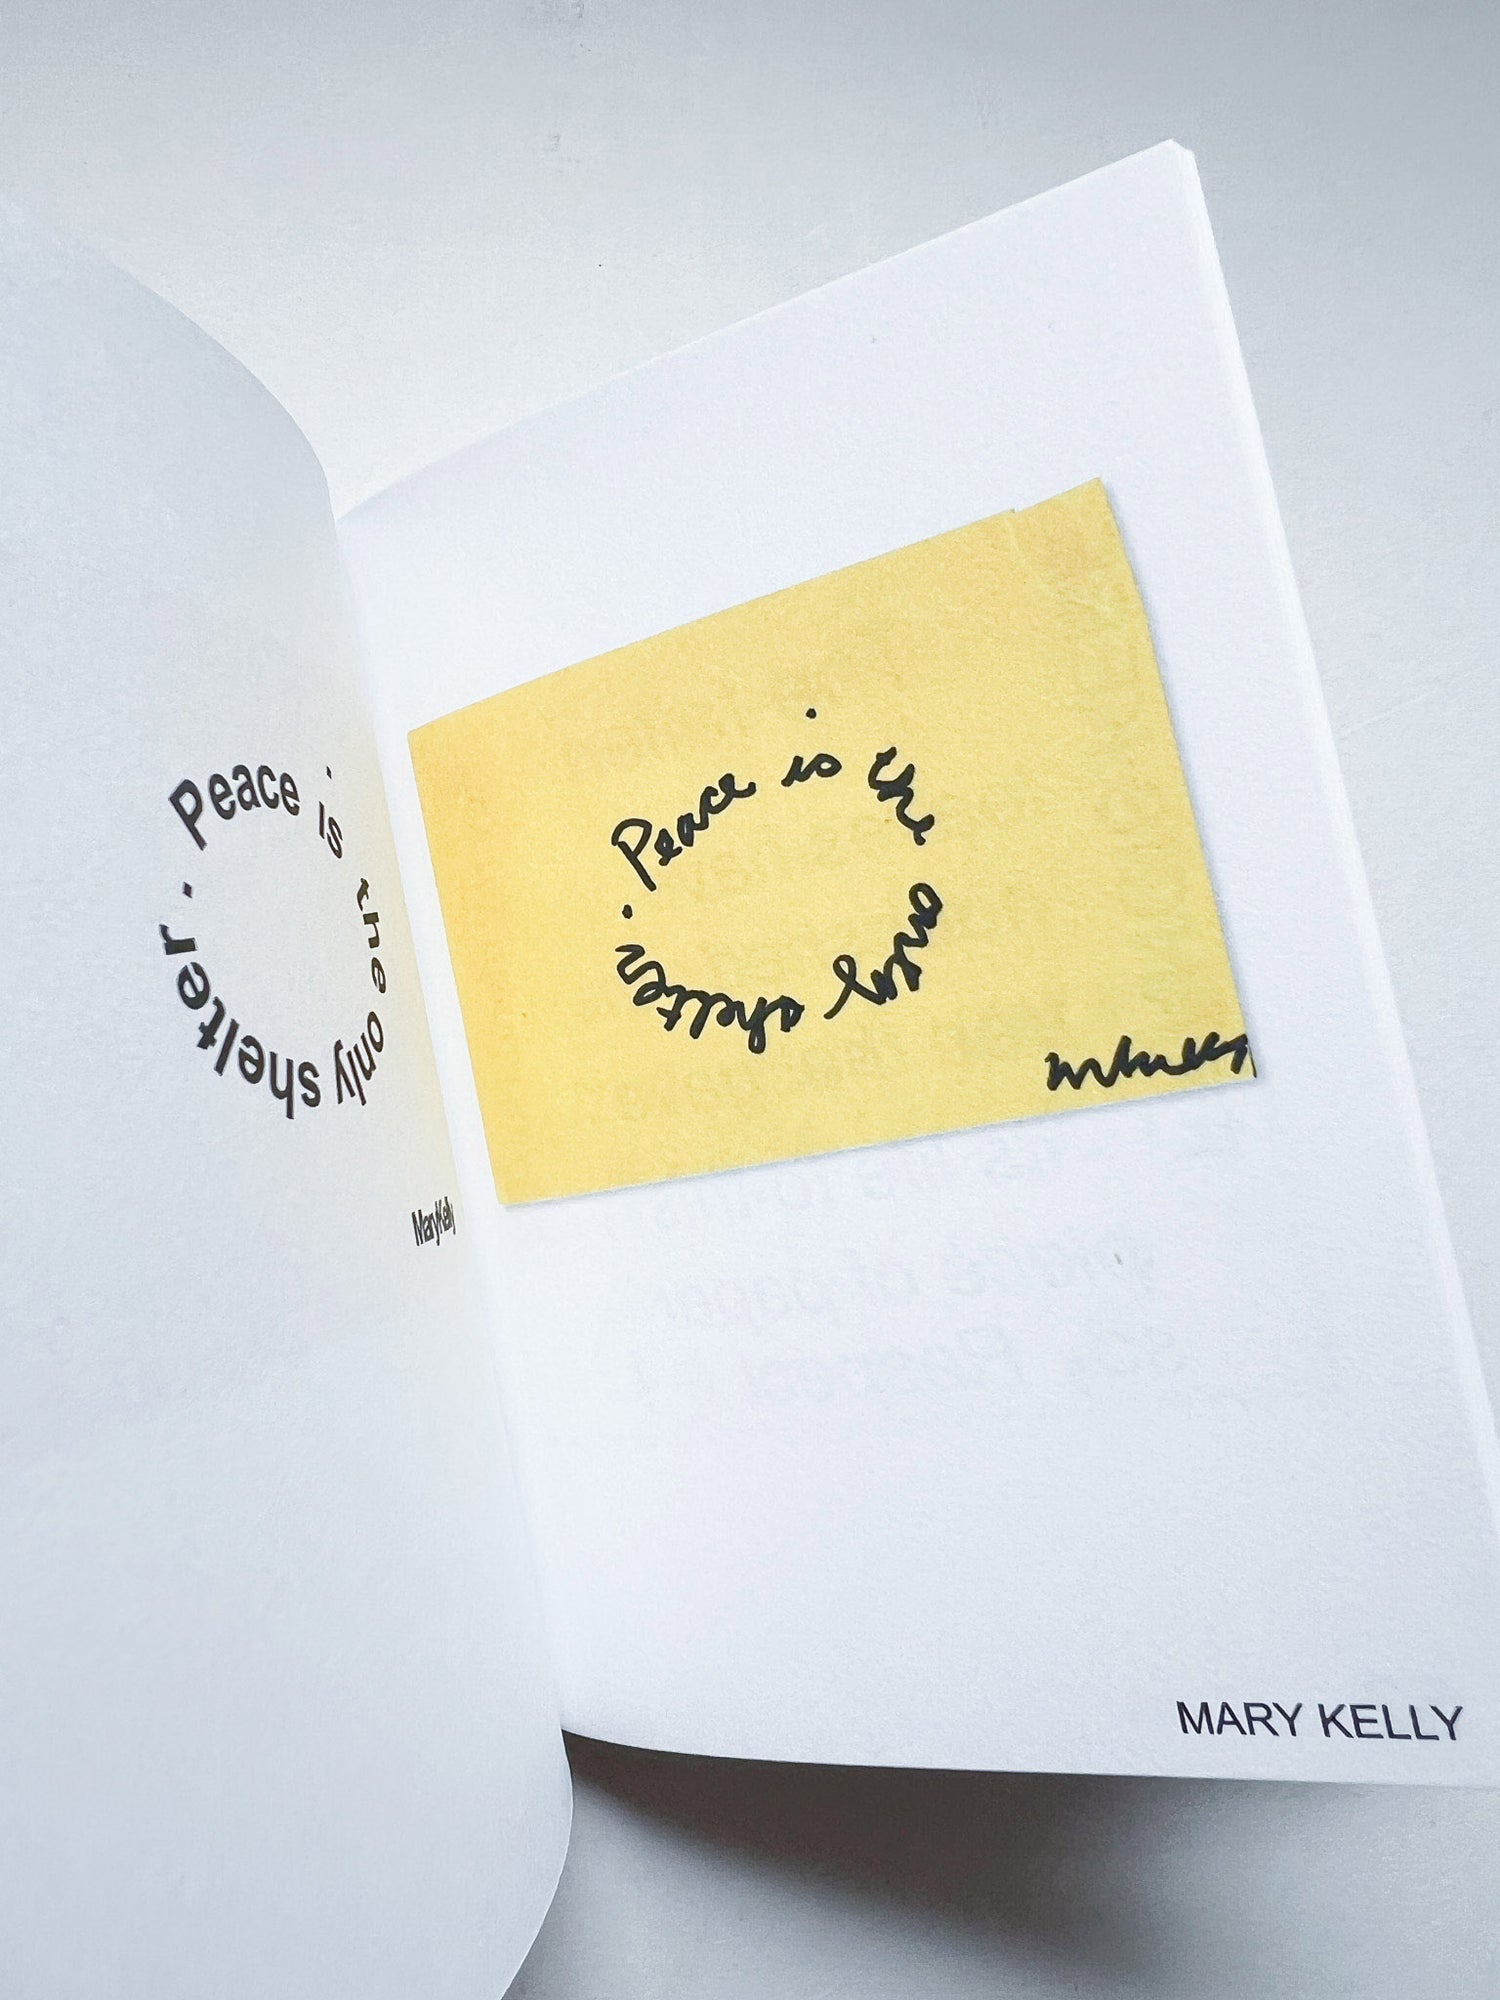 · Peace is the only shelter ·
Mary Kelly
· Peace is the only shelter ·
MARY KELLY